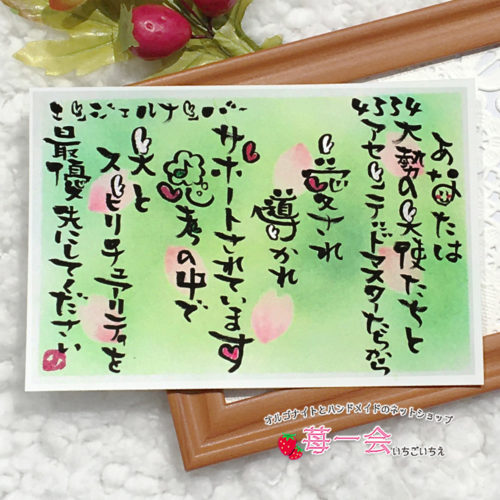 あなたは
4334
大勢の天使たちと
アセンデットマスターたちから
愛され
導かれ
サポートされています
思考の中で
天と
スピリチュアリティを
最優先にしてください
エンジェルナンバー
オルゴナイトとハンドメイドのネットショップ
苺一会
いちごいちえ